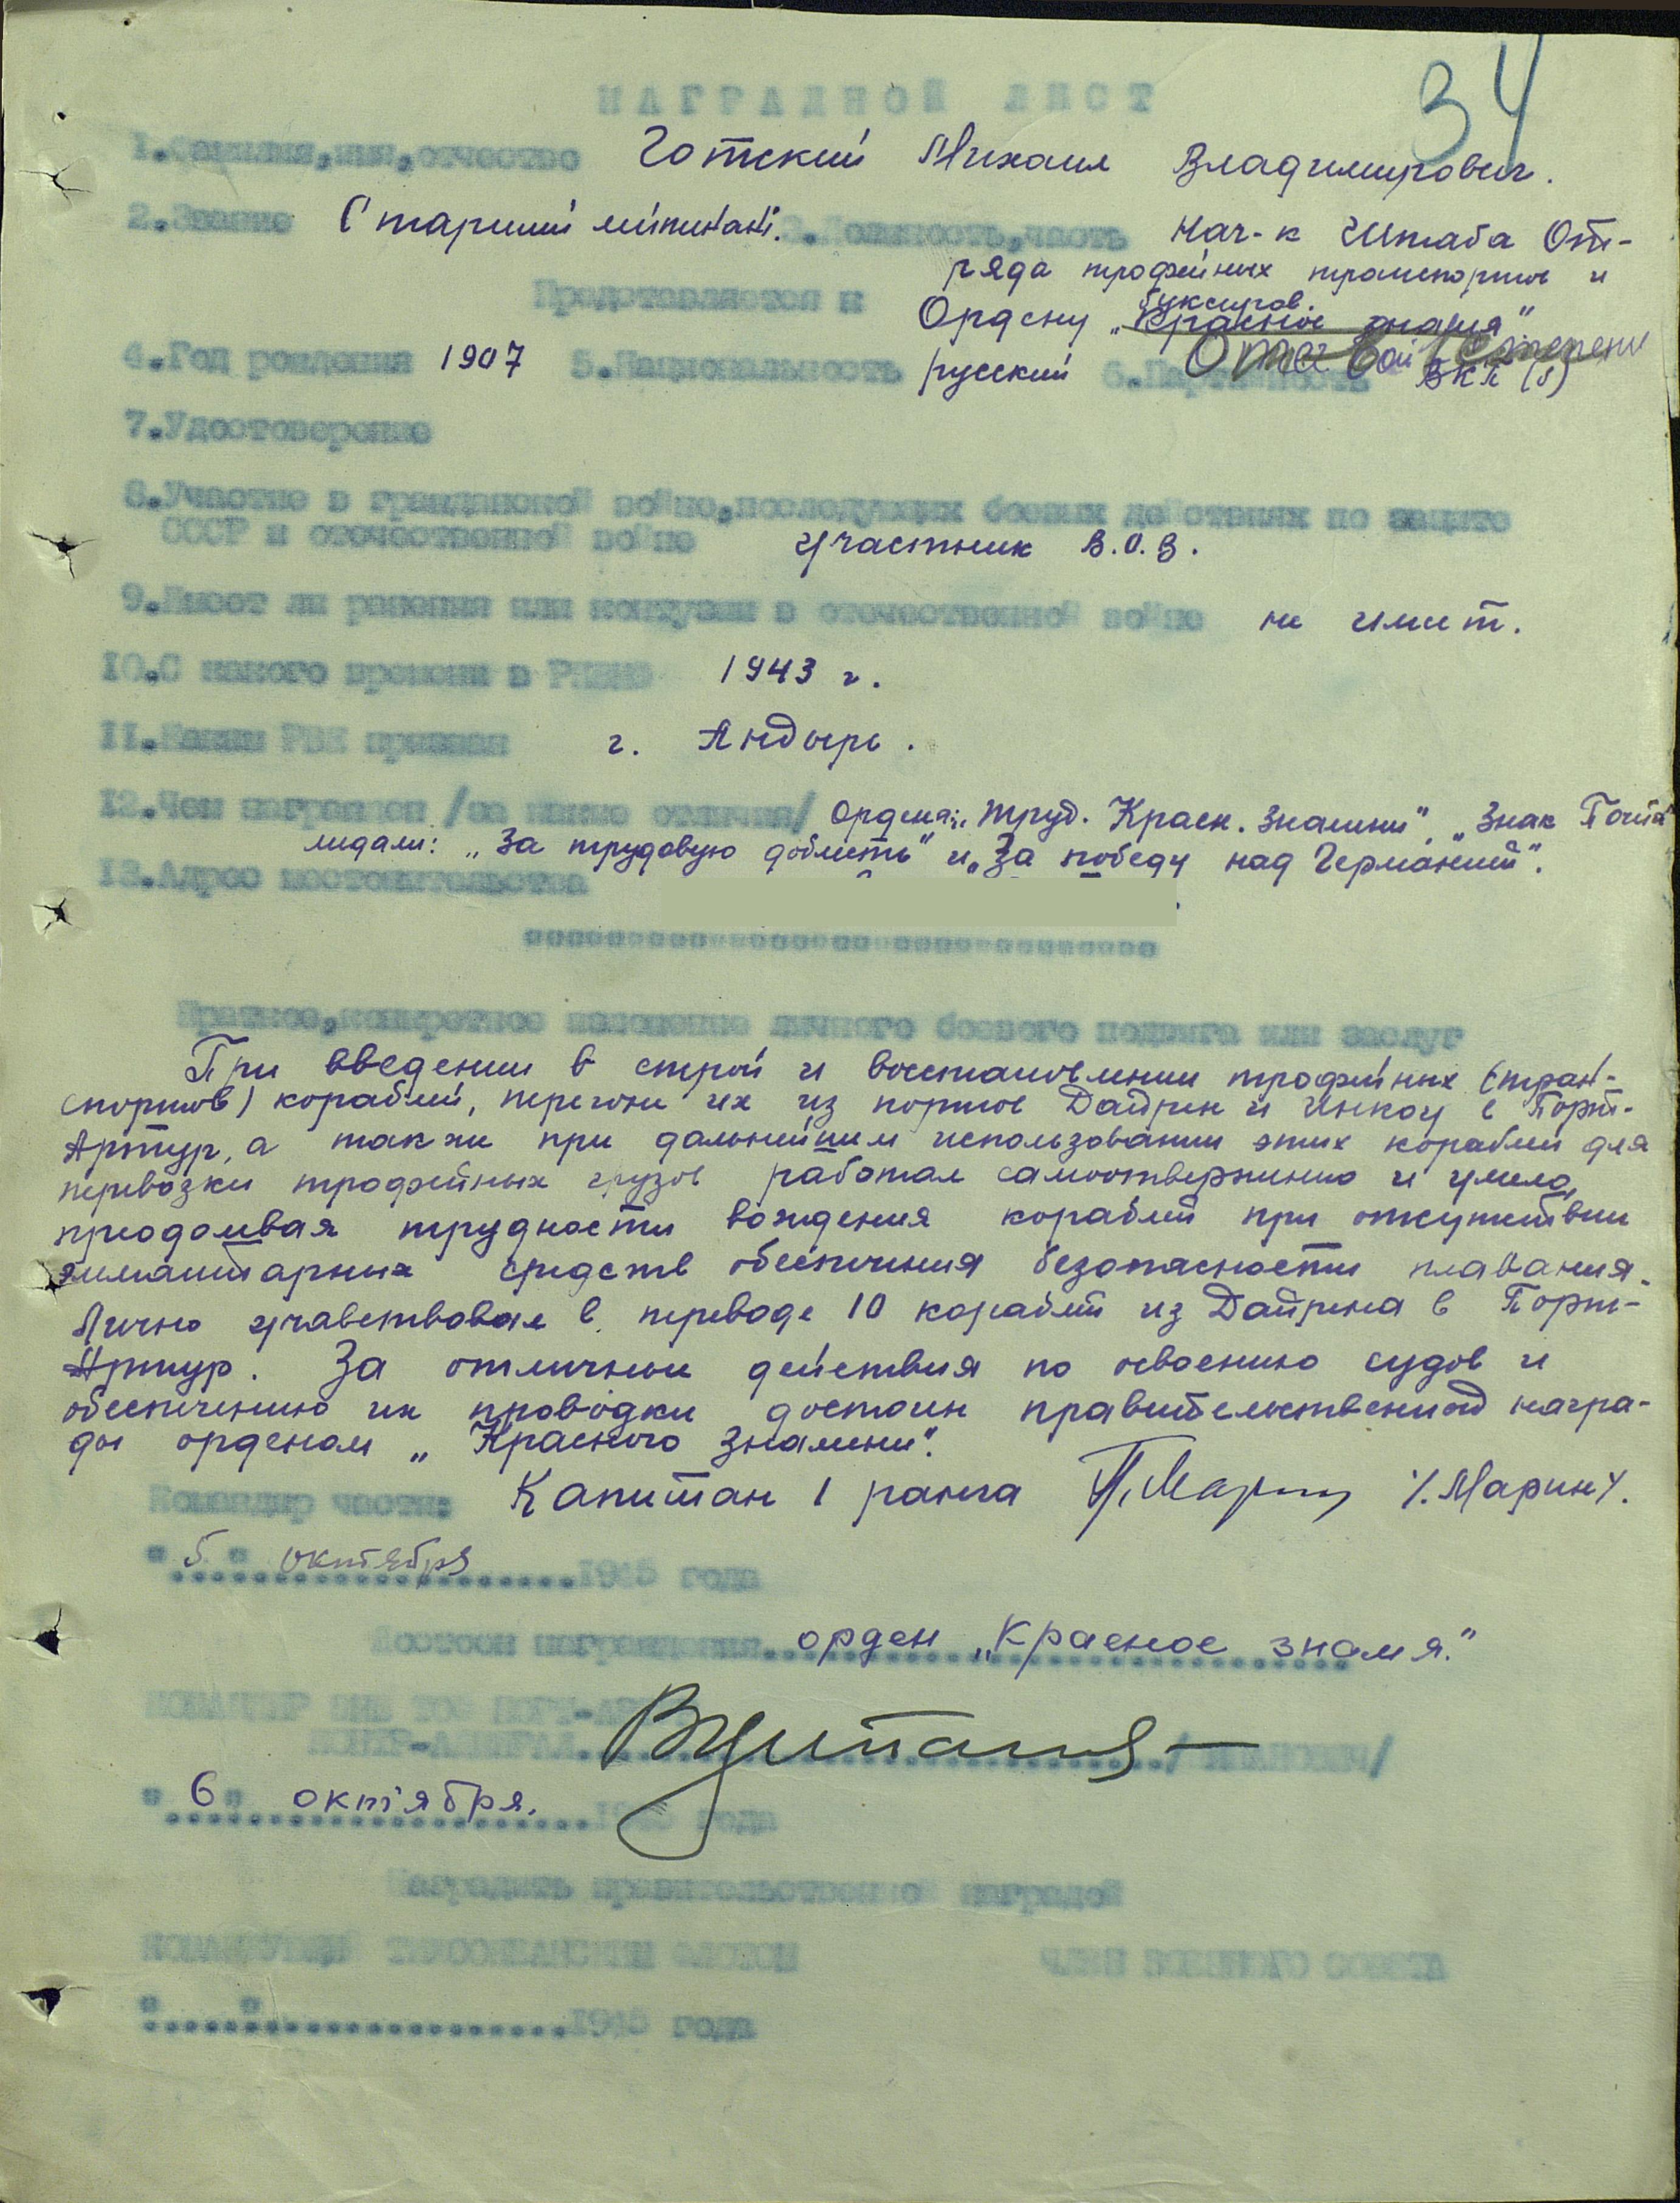 34
НАГРАДНОЙ ЛИСТ
1.Фамилия,имя,отчество Готский Михаил Владимирович.
2.Звание Старший лейтенант. 3.Должность,часть Нач-к Штаба От-
ряда трофейных транспортов и
буксиров.
Представляется к Ордену „Красное знамя"
Отеч вой степени
4.Год рождения 1907 5.Национальность русский 6.Партийность ВКП(б)
7.Удостоверение
8.Участие в гражданской войне,последующих боевых действиях по защите
СССР и отечественной войне участник В.О.В.
9.Имеет ли ранения или контузии в отечественной войне не имеет.
10.С какого времени в РКВМФ 1943 г.
11.Каким РВК призван г. Андырь.
12.Чем награжден /за какие отличия/ Ордена: „Труд. Красн. Знамени", „Знак Почета"
медали: „За трудовую доблесть" и „За победу над Германией".
13.Адрес местожительства
Краткое,конкретное изложение личного боевого подвига или заслуг
При введении в строй и восстановлении трофейных (тран-
спортов) кораблей, перегоне их из портов Дайрен и Инкоу в Порт-
Артур, а также при дальнейшем использовании этих кораблей для
перевозки трофейных грузов работал самоотверженно и умело,
преодолевая трудности вождения кораблей при отсутствии
элементарных средств обеспечения безопасности плавания.
Лично участвовал в переводе 10 кораблей из Дайрена в Порт-
Артур. За отличные действия по освоению судов и
обеспечению их проводки достоин правительственной награ-
ды орденом „Красного Знамени".
Командир части: Капитан 1 ранга /.Марин/.
"5" октября 1945 года
Достоин награждения орден „Красное знамя."
КОМАНДИР ВМБ ТОФ ПОРТ-АРТУР
КОНТР-АДМИРАЛ /ЦИПАНОВИЧ/
"6" октября. 1945 года
Наградить правительственной наградой
КОМАНДУЮЩИЙ ТИХООКЕАНСКИМ ФЛОТОМ ЧЛЕН ВОЕННОГО СОВЕТА
" " 1945 года